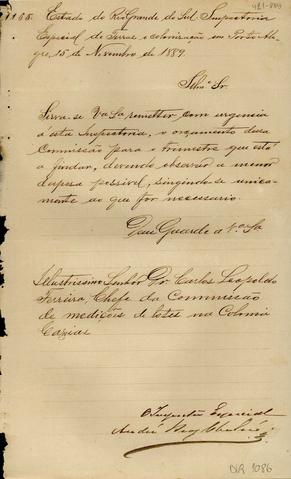 Estado do Rio Grande do Sul. Inspectoria
Especial de Terras e colonisação em Porto Ale-
gre, 15 de Novembro de 1889.
Illmo Sr.
Sirva-se Va Sa remetter com urgencia
a esta Inspectoria, o orçamento dessa
Commissão para o trimestre que está
a findar, devendo observar a menor
despesa possivel, singindo-se unica-
mente ao que for necessario.
Deus Guarde a Va Sa
Illustrissimo Senhor Dr. Carlos Leopoldo
Ferreira, Chefe da Commissão
de medições de lotes na Colonia
Caxias
O Inspector Especial
André
DLR 1086